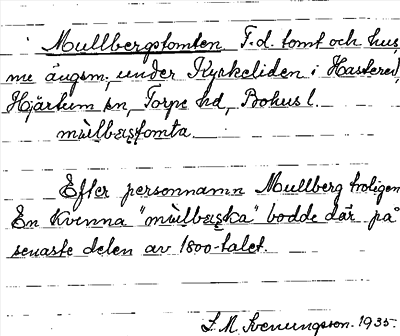 Mullbergstomten. F.d. tomt och hus,
nu ängsm., under Kyrkeliden i Hastered,
Hjärtum sn, Torpe hd, Bohus l.
mùlbæstomta.
Efter personnamn Mullberg troligen
En kvinna "mùlbæska" bodde där på
senaste delen av 1800-talet.
L. M. Svenungsson. 1935.